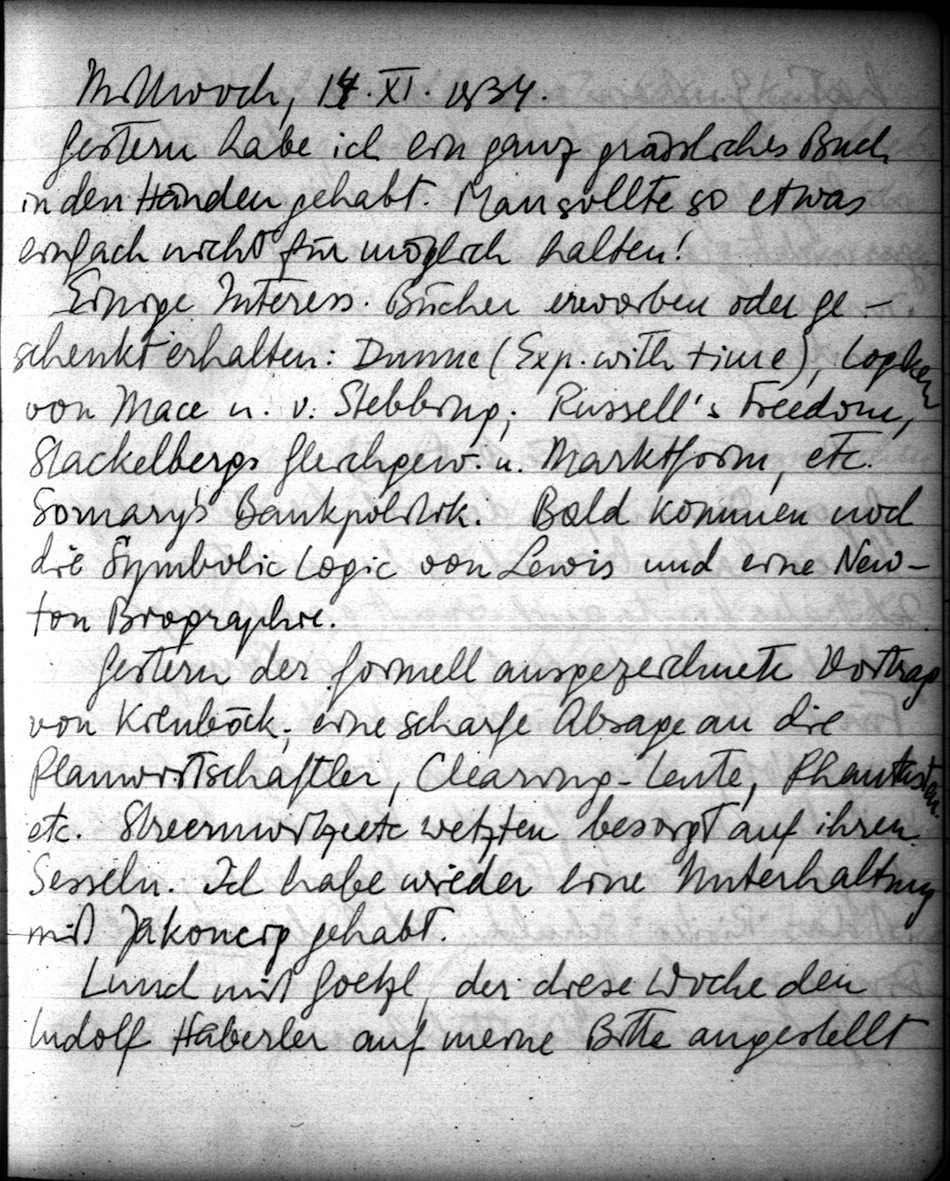 Mittwoch, 14. XI. 1934.
Gestern habe ich ein ganz grässliches Buch
in den Händen gehabt. Man sollte so etwas
einfach nicht für möglich halten!
Einige Interess. Bücher erworben oder ge-
schenkt erhalten: Dunne (Exp. with time), Logiken
von Mace u. v. Stebbing; Russell's Freedom,
Stackelbergs Gleichgew. u. Marktform, etc.
Somary's Bankpolitik. Bald kommen noch
die Symbolic Logic von Lewis und eine New-
ton Biographie.
Gestern der formell ausgezeichnete Vortrag
von Kienböck; eine scharfe Absage an die
Planwirtschaftler, Clearing-Leute, Phantasten
etc. Streeruwitz etc wetzten besorgt auf ihren
Sesseln. Ich habe wieder eine Unterhaltung
mit Jakoncig gehabt.
Lunch mit Goetzl, der diese Woche den
Rudolf Haberler auf meine Bitte angestellt